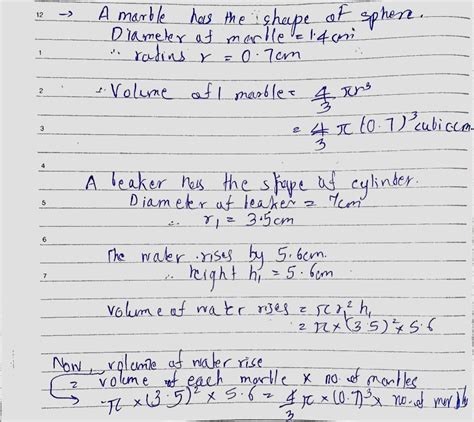 12 → A marble has the shape of sphere.
Diameter of marble = 1.4cm
1 ∴ radius r = 0.7cm
2 ∴ Volume of 1 marble = 4/3 πr³
3 = 4/3 π (0.7)³ cubic cm
4
A beaker has the shape of cylinder.
5 Diameter of beaker = 7cm
∴ r₁ = 3.5cm
6
The water rises by 5.6cm.
7 ∴ height h₁ = 5.6cm
Volume of water rises = πr₁² h₁
= π × (3.5)² × 5.6
Now, volume of water rise
= volume of each marble × no. of marbles
π × (3.5)² × 5.6 = 4/3 π × (0.7)³ × no. of marbles